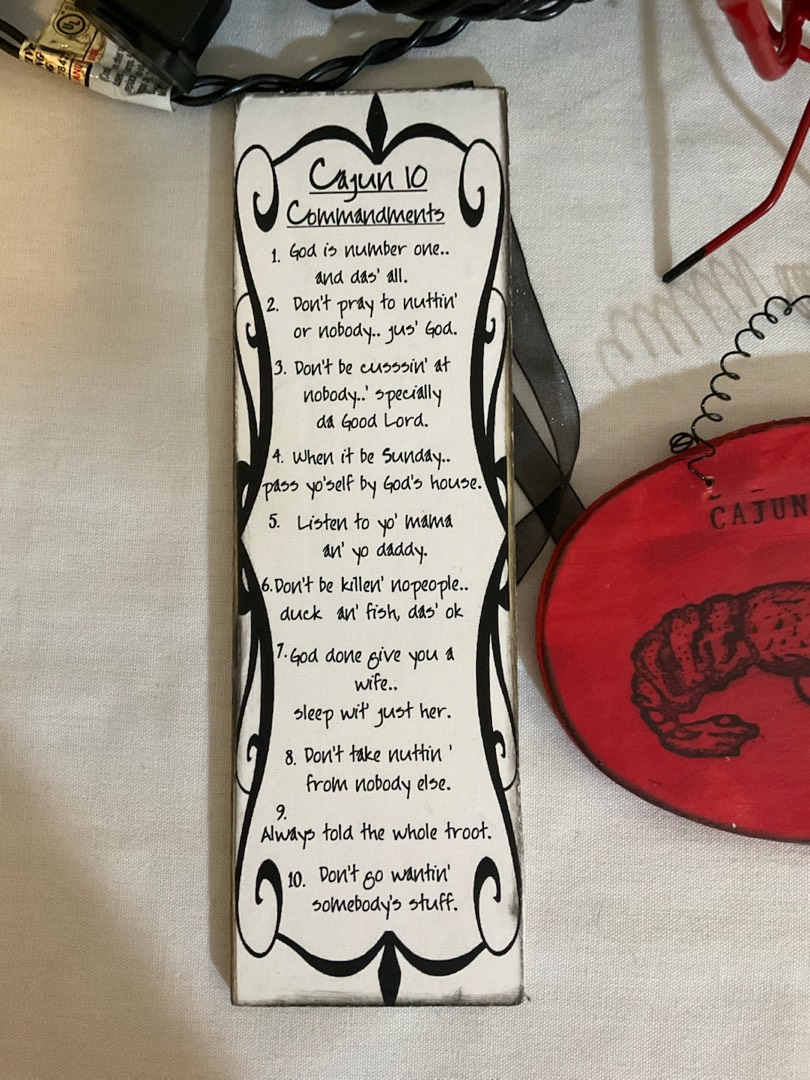 Cajun 10
Commandments
1. God is number one..
and das' all.
2. Don't pray to nuttin'
or nobody.. jus' God.
3. Don't be cusssin' at
nobody..' specially
da Good Lord.
4. When it be Sunday..
pass yo'self by God's house.
5. Listen to yo' mama
an' yo daddy.
6. Don't be killen' nopeople..
duck an' fish, das' ok
7. God done give you a
wife..
sleep wit' just her.
8. Don't take nuttin '
from nobody else.
9.
Always told the whole troot.
10. Don't go wantin'
somebody's stuff.
CAJUN